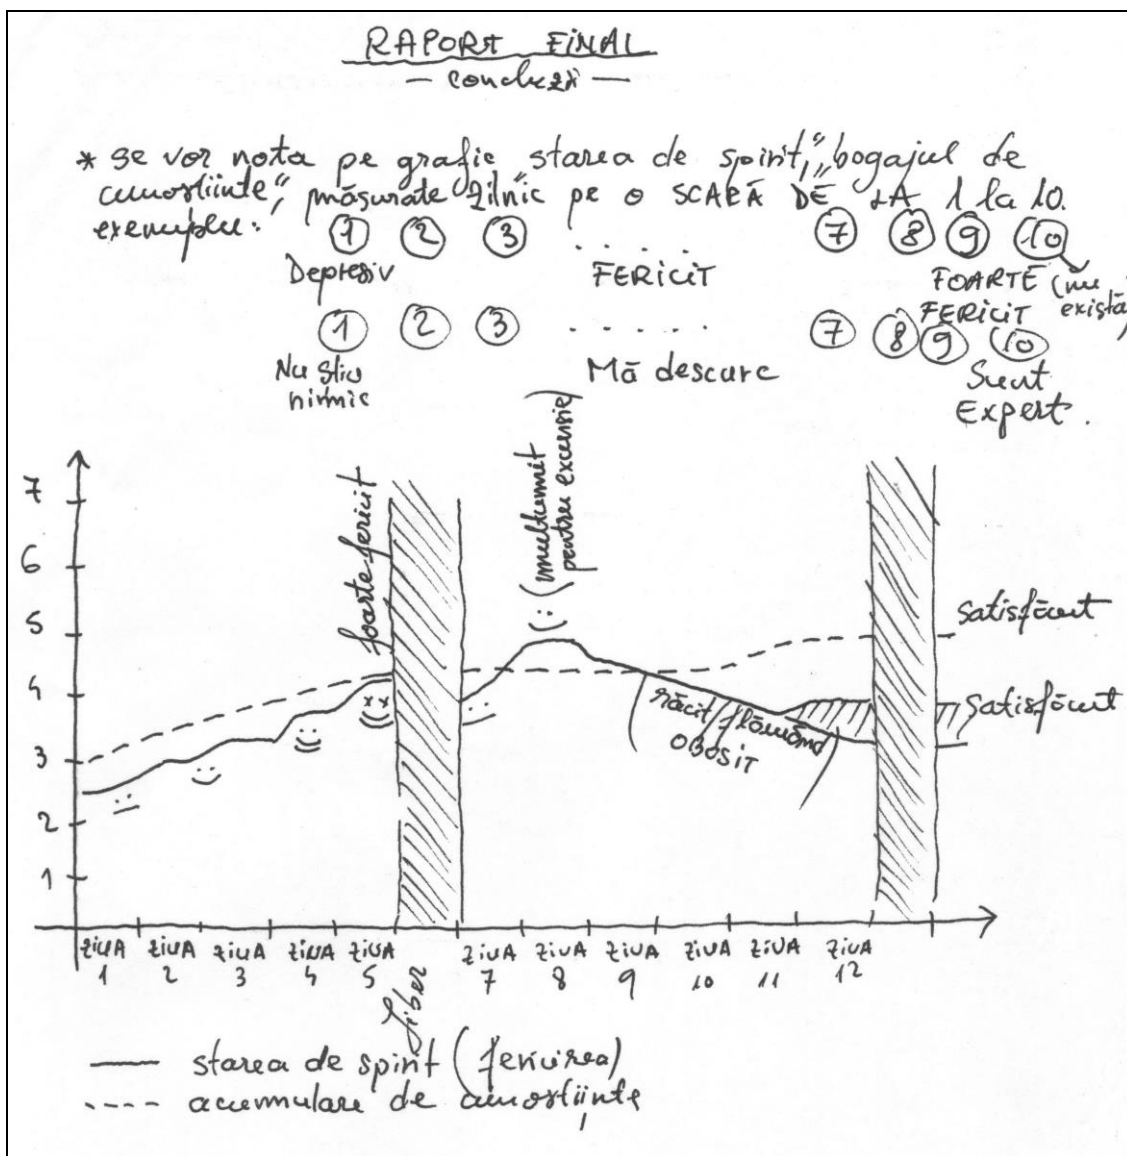 RAPORT FINAL
— concluzii —
* se vor nota pe grafic „starea de spirit", „bagajul de
cunoștiințe", măsurate zilnic pe o SCARĂ DE LA 1 la 10.
exemplu: 1 2 3 . . . . . . 7 8 9 10
Depresiv FERICIT FOARTE FERICIT (nu există)
1 2 3 . . . . . . 7 8 9 10
Nu știu nimic Mă descurc Sunt Expert.
7
6
5
4
3
2
1
foarte fericit
(mulțumit
pentru excursie)
satisfăcut
satisfăcut
răcit / flămând
OBOSIT
ZIUA 1
ZIUA 2
ZIUA 3
ZIUA 4
ZIUA 5
liber
ZIUA 7
ZIUA 8
ZIUA 9
ZIUA 10
ZIUA 11
ZIUA 12
—— starea de spirit (fericirea)
---- acumulare de cunoștiințe